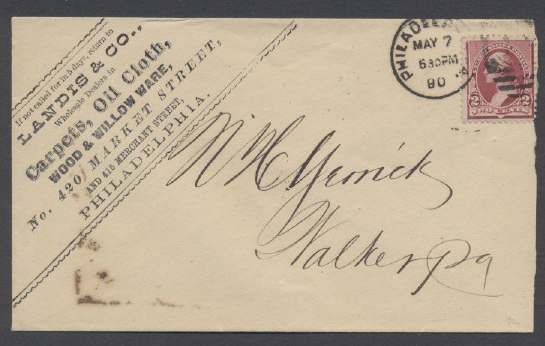 If not called for in 5 days, return to
LANDIS & CO.,
Wholesale Dealers in
Carpets, Oil Cloth,
WOOD & WILLOW WARE,
No. 420 MARKET STREET,
AND 415 MERCHANT STREET,
PHILADELPHIA.
PHILADEL
PA
MAY 7
630PM
90
2 2
TWO CENTS
Walker Pa